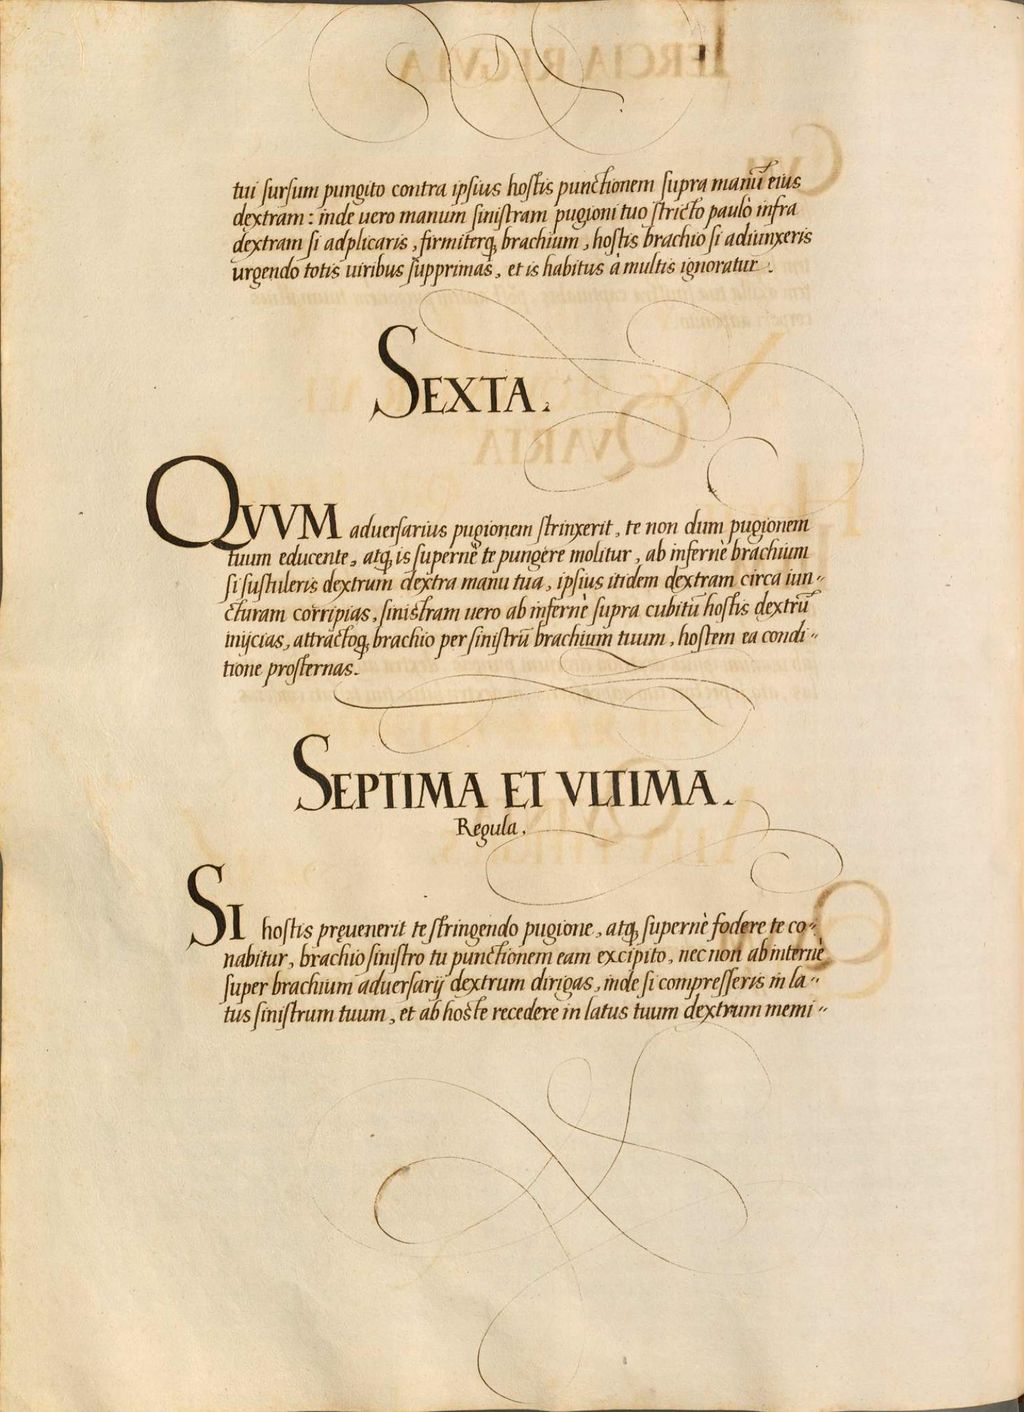 tui ſurſum pungito contra ipſius hoſtis punctionem ſupra manū eius
dextram : inde uero manum ſiniſtram pugioni tuo ſtricto paulò infra
dextram ſi adplicaris , firmiterq; brachium , hoſtis brachio ſi adiunxeris
urgendo totis uiribus ſupprimas , et is habitus à multis ignoratur .
SEXTA .
QVVM aduerſarius pugionem ſtrinxerit , te non dum pugionem
tuum educente , atq; is ſupernè te pungere molitur , ab infernè brachium
ſi ſuſtuleris dextrum dextra manu tua , ipſius itidem dextram circa iun〃
cturam corripias , ſiniſtram uero ab infernè ſupra cubitū hoſtis dextrū
inijcias , attractoq; brachio per ſiniſtrū brachium tuum , hoſtem ea condi〃
tione proſternas .
SEPTIMA ET VLTIMA .
Regula .
SI hoſtis pręuenerit te ſtringendo pugione , atq; ſupernè fodere te co〃
nabitur , brachio ſiniſtro tu punctionem eam excipito , nec non ab internè
ſuper brachium aduerſarij dextrum dirigas , inde ſi compreſſeris in la〃
tus ſiniſtrum tuum , et ab hoſte recedere in latus tuum dextrum memi〃